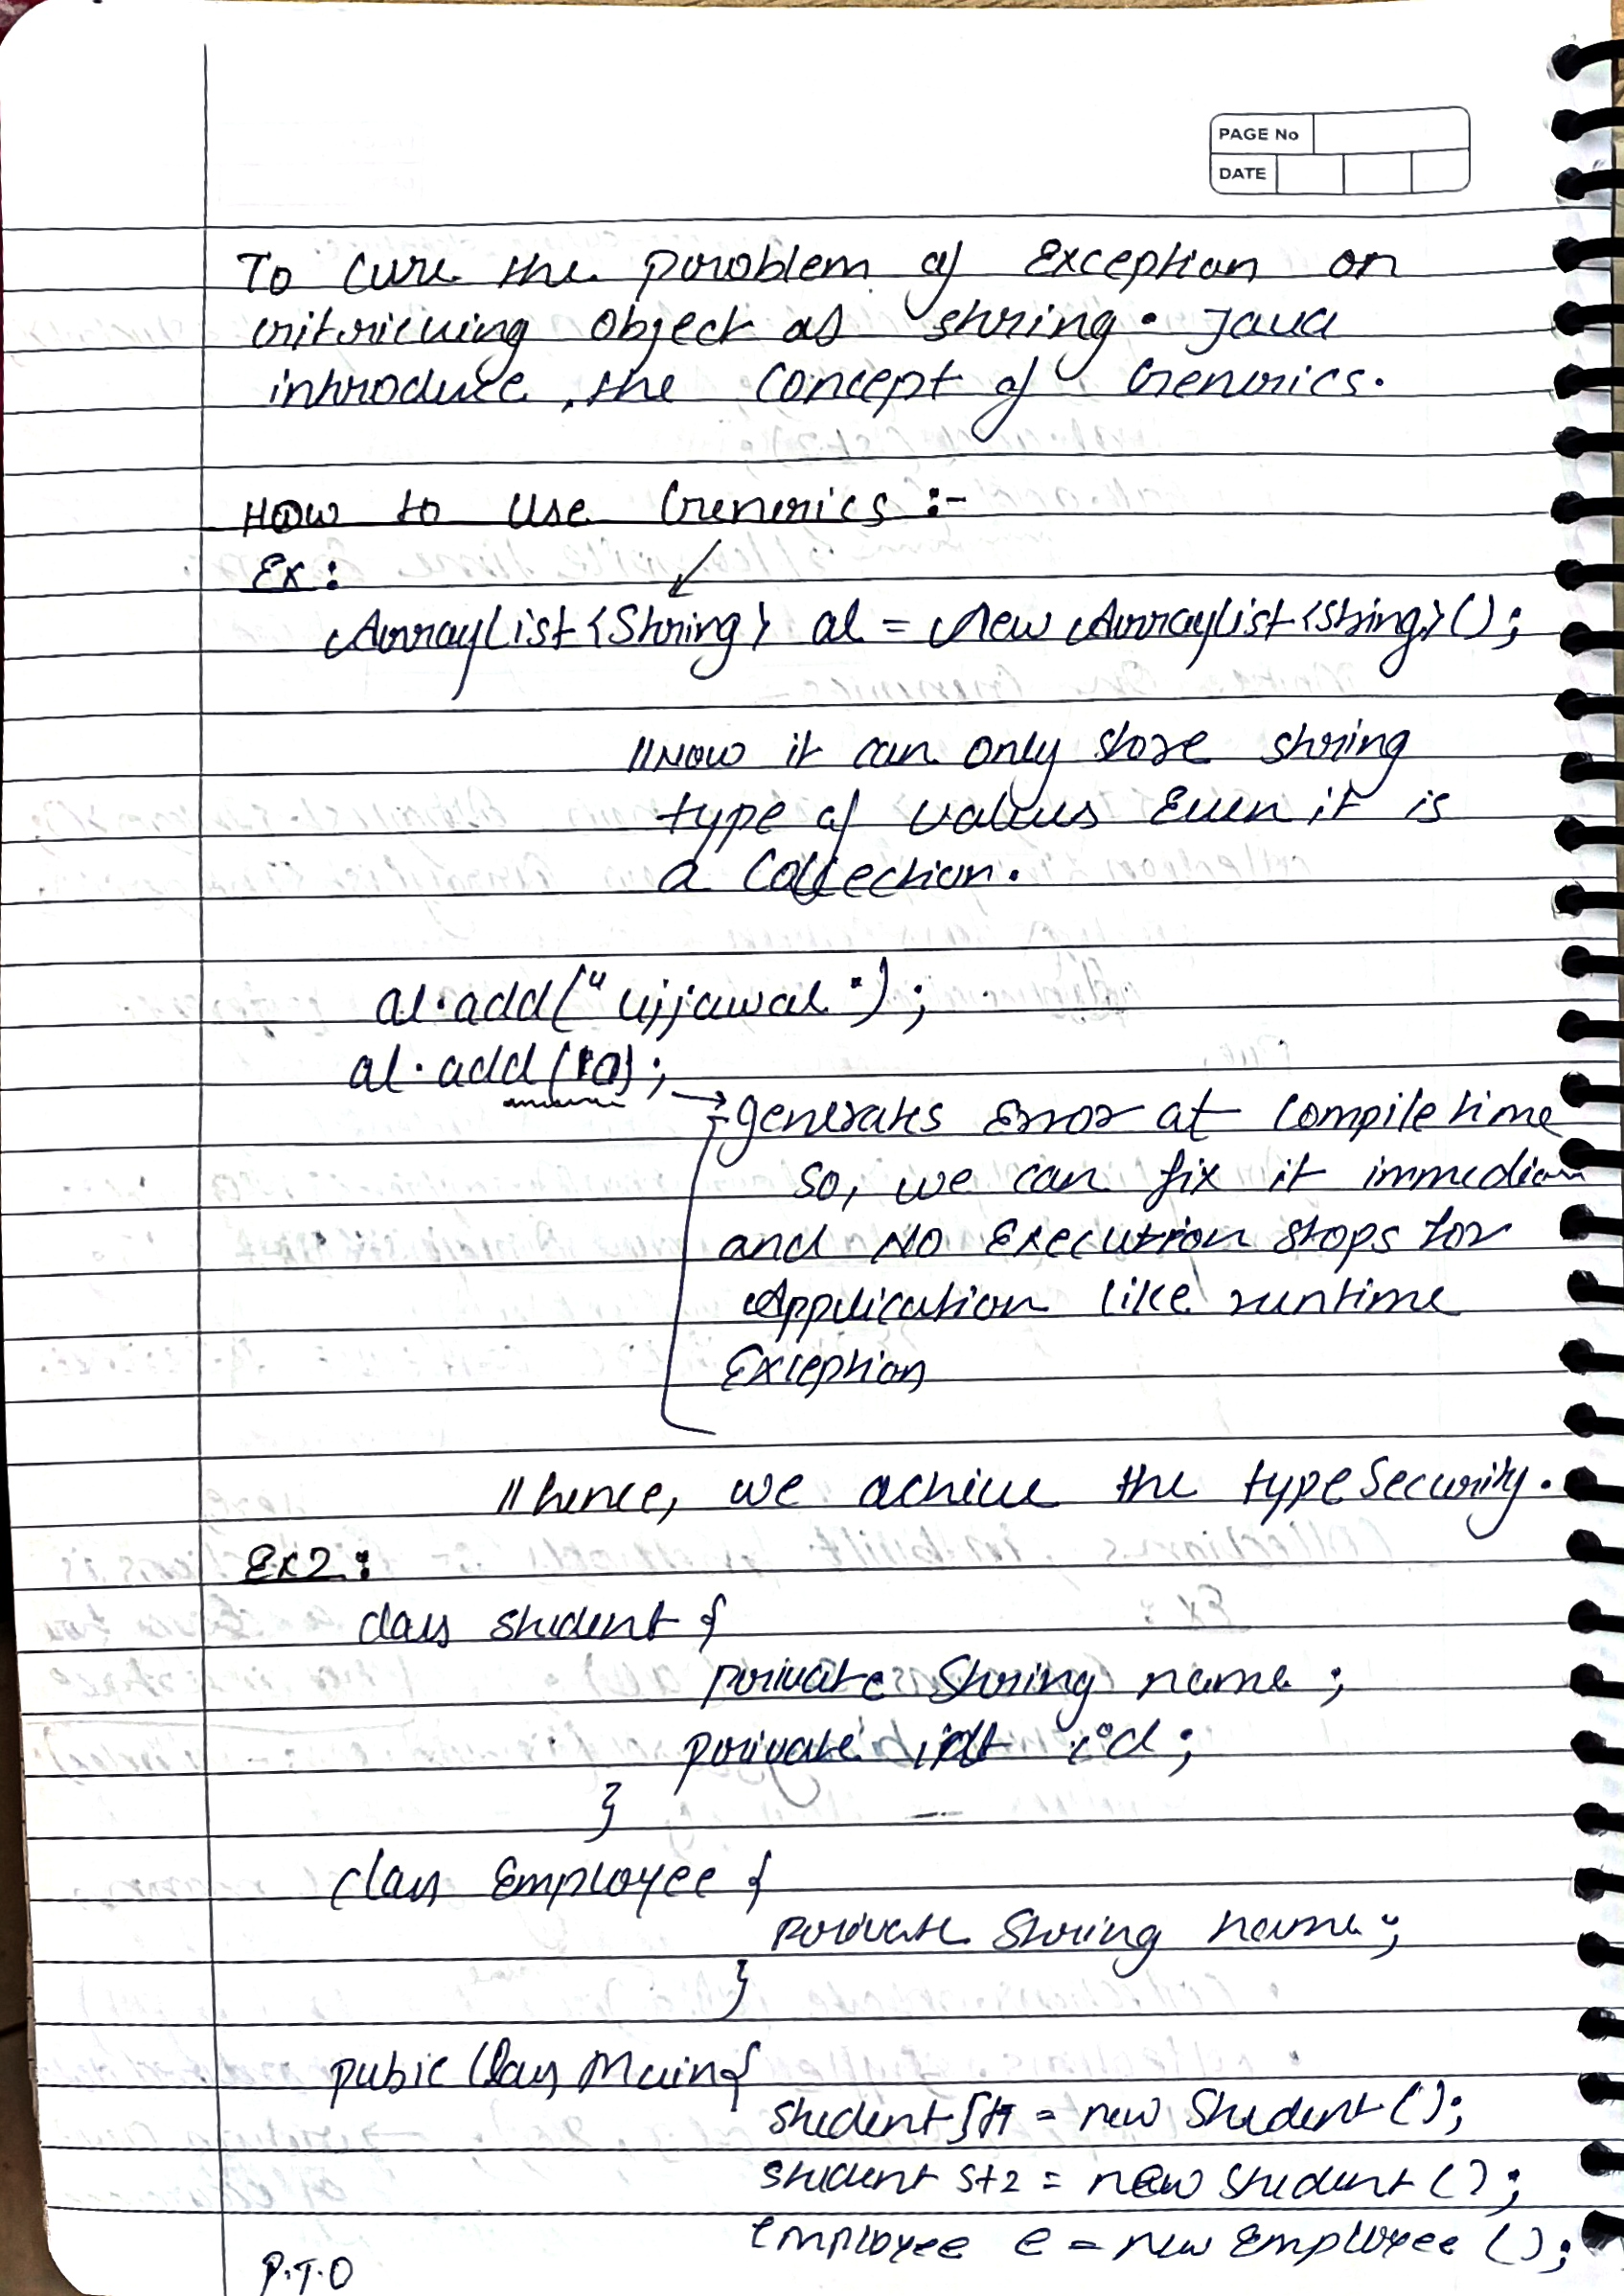 PAGE No
DATE
To cure the problem of Exception on
retrieving object as string. Java
introduce, the concept of Generics.
How to use Generics :-
Ex :
ArrayList<String> al = new ArrayList<String>();
//Now it can only store string
type of values Even it is
a Collection.
al.add("ujjawal");
al.add(10);
→ generates Error at compile time
so, we can fix it
and No Execution stops for
Application like runtime
Exception
//hence, we achieve the type Security.
Ex2 :
class student {
private String name ;
private int id ;
}
class Employee {
private String name ;
}
pubic Class Main{
student st1 = new Student ();
student st2 = new student ();
Employee e = new Employee ();
P.T.O